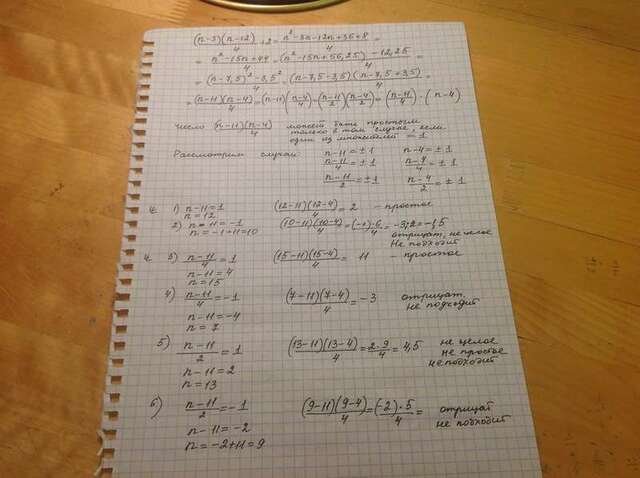 (n-3)(n-12)/4 + 2 = n²-3n-12n+36+8/4 =
= n²-15n+44/4 = (n²-15n+56,25)-12,25/4 =
= (n-7,5)²-3,5²/4 = (n-7,5-3,5)(n-7,5+3,5)/4 =
= (n-11)(n-4)/4 = (n-11)(n-4/4) = (n-11/2)(n-4/2) = (n-11/4)·(n-4)
Число (n-11)(n-4)/4 может быть простым
только в том случае, если
один из множителей = 1
Рассмотрим случаи:
n-11=±1 n-4=±1
n-11/4=±1 n-4/4=±1
n-11/2=±1 n-4/2=±1
1) n-11=1 (12-11)(12-4)/4 = 2 - простое
n=12
2) n-11=-1 (10-11)(10-4)/4 = (-1)·6/4 = -3:2=-1,5
n=-1+11=10 отрицат, не целое
Не подходит
3) n-11/4=1 (15-11)(15-4)/4 = 11 - простое
n-11=4
n=15
4) n-11/4=-1 (7-11)(7-4)/4 = -3 отрицат,
не подходит
n-11=-4
n=7
5) n-11/2=1 (13-11)(13-4)/4 = 2·9/4 = 4,5 не целое
не простое
не подходит
n-11=2
n=13
6) n-11/2=-1 (9-11)(9-4)/4 = (-2)·5/4 = отрицат
не подходит
n-11=-2
n=-2+11=9